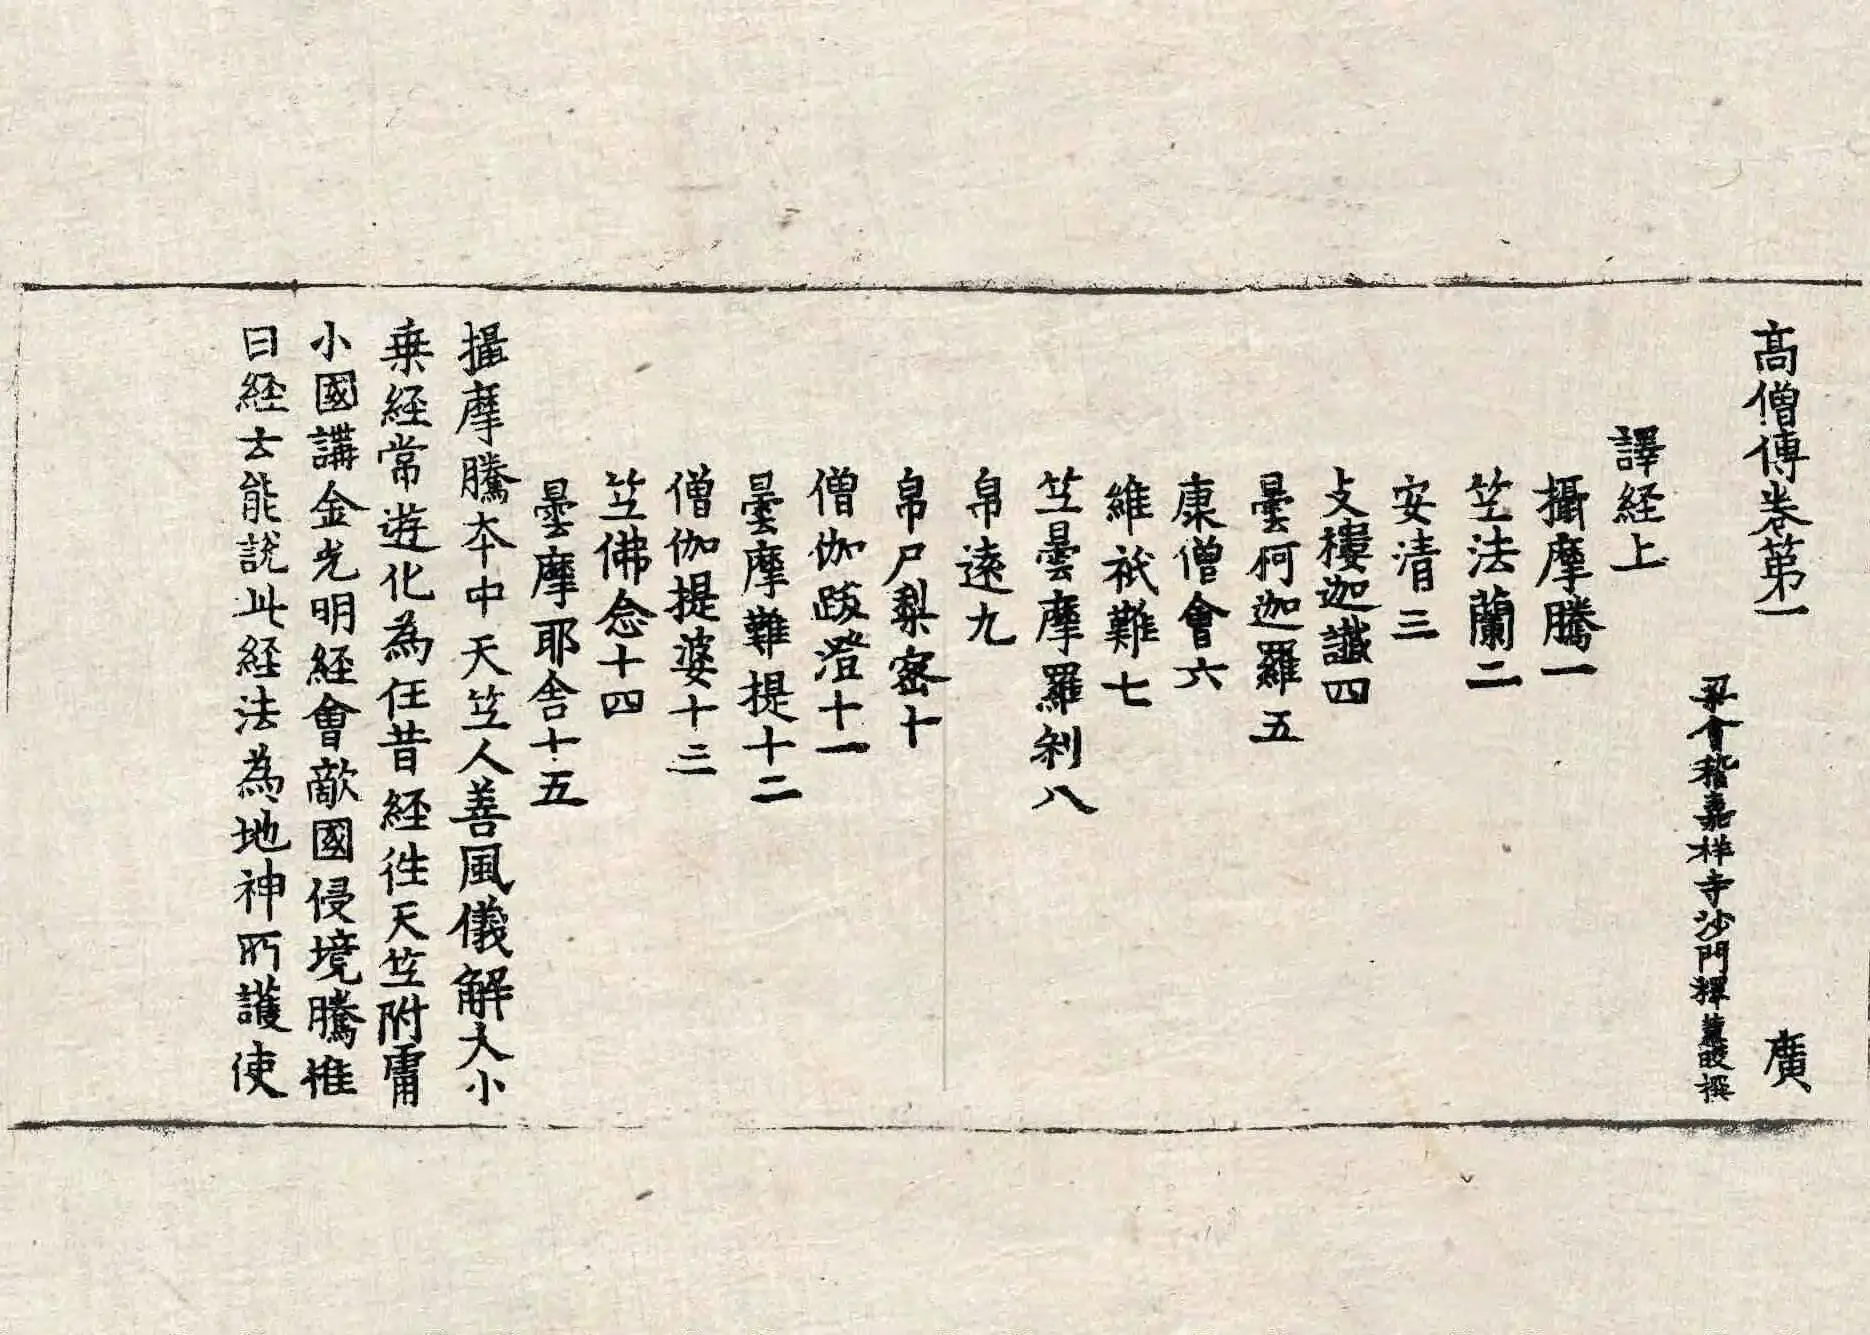 高僧傳卷第一 廣
梁會稽嘉祥寺沙門釋慧皎撰
譯經上
攝摩騰一
竺法蘭二
安清三
支樓迦讖四
曇柯迦羅五
康僧會六
維祇難七
竺曇摩羅刹八
帛遠九
帛尸梨密十
僧伽跋澄十一
曇摩難提十二
僧伽提婆十三
竺佛念十四
曇摩耶舍十五
攝摩騰本中天竺人善風儀解大小
乘經常遊化為任昔經往天竺附庸
小國講金光明經會敵國侵境騰惟
曰經云能說此經法為地神所護使